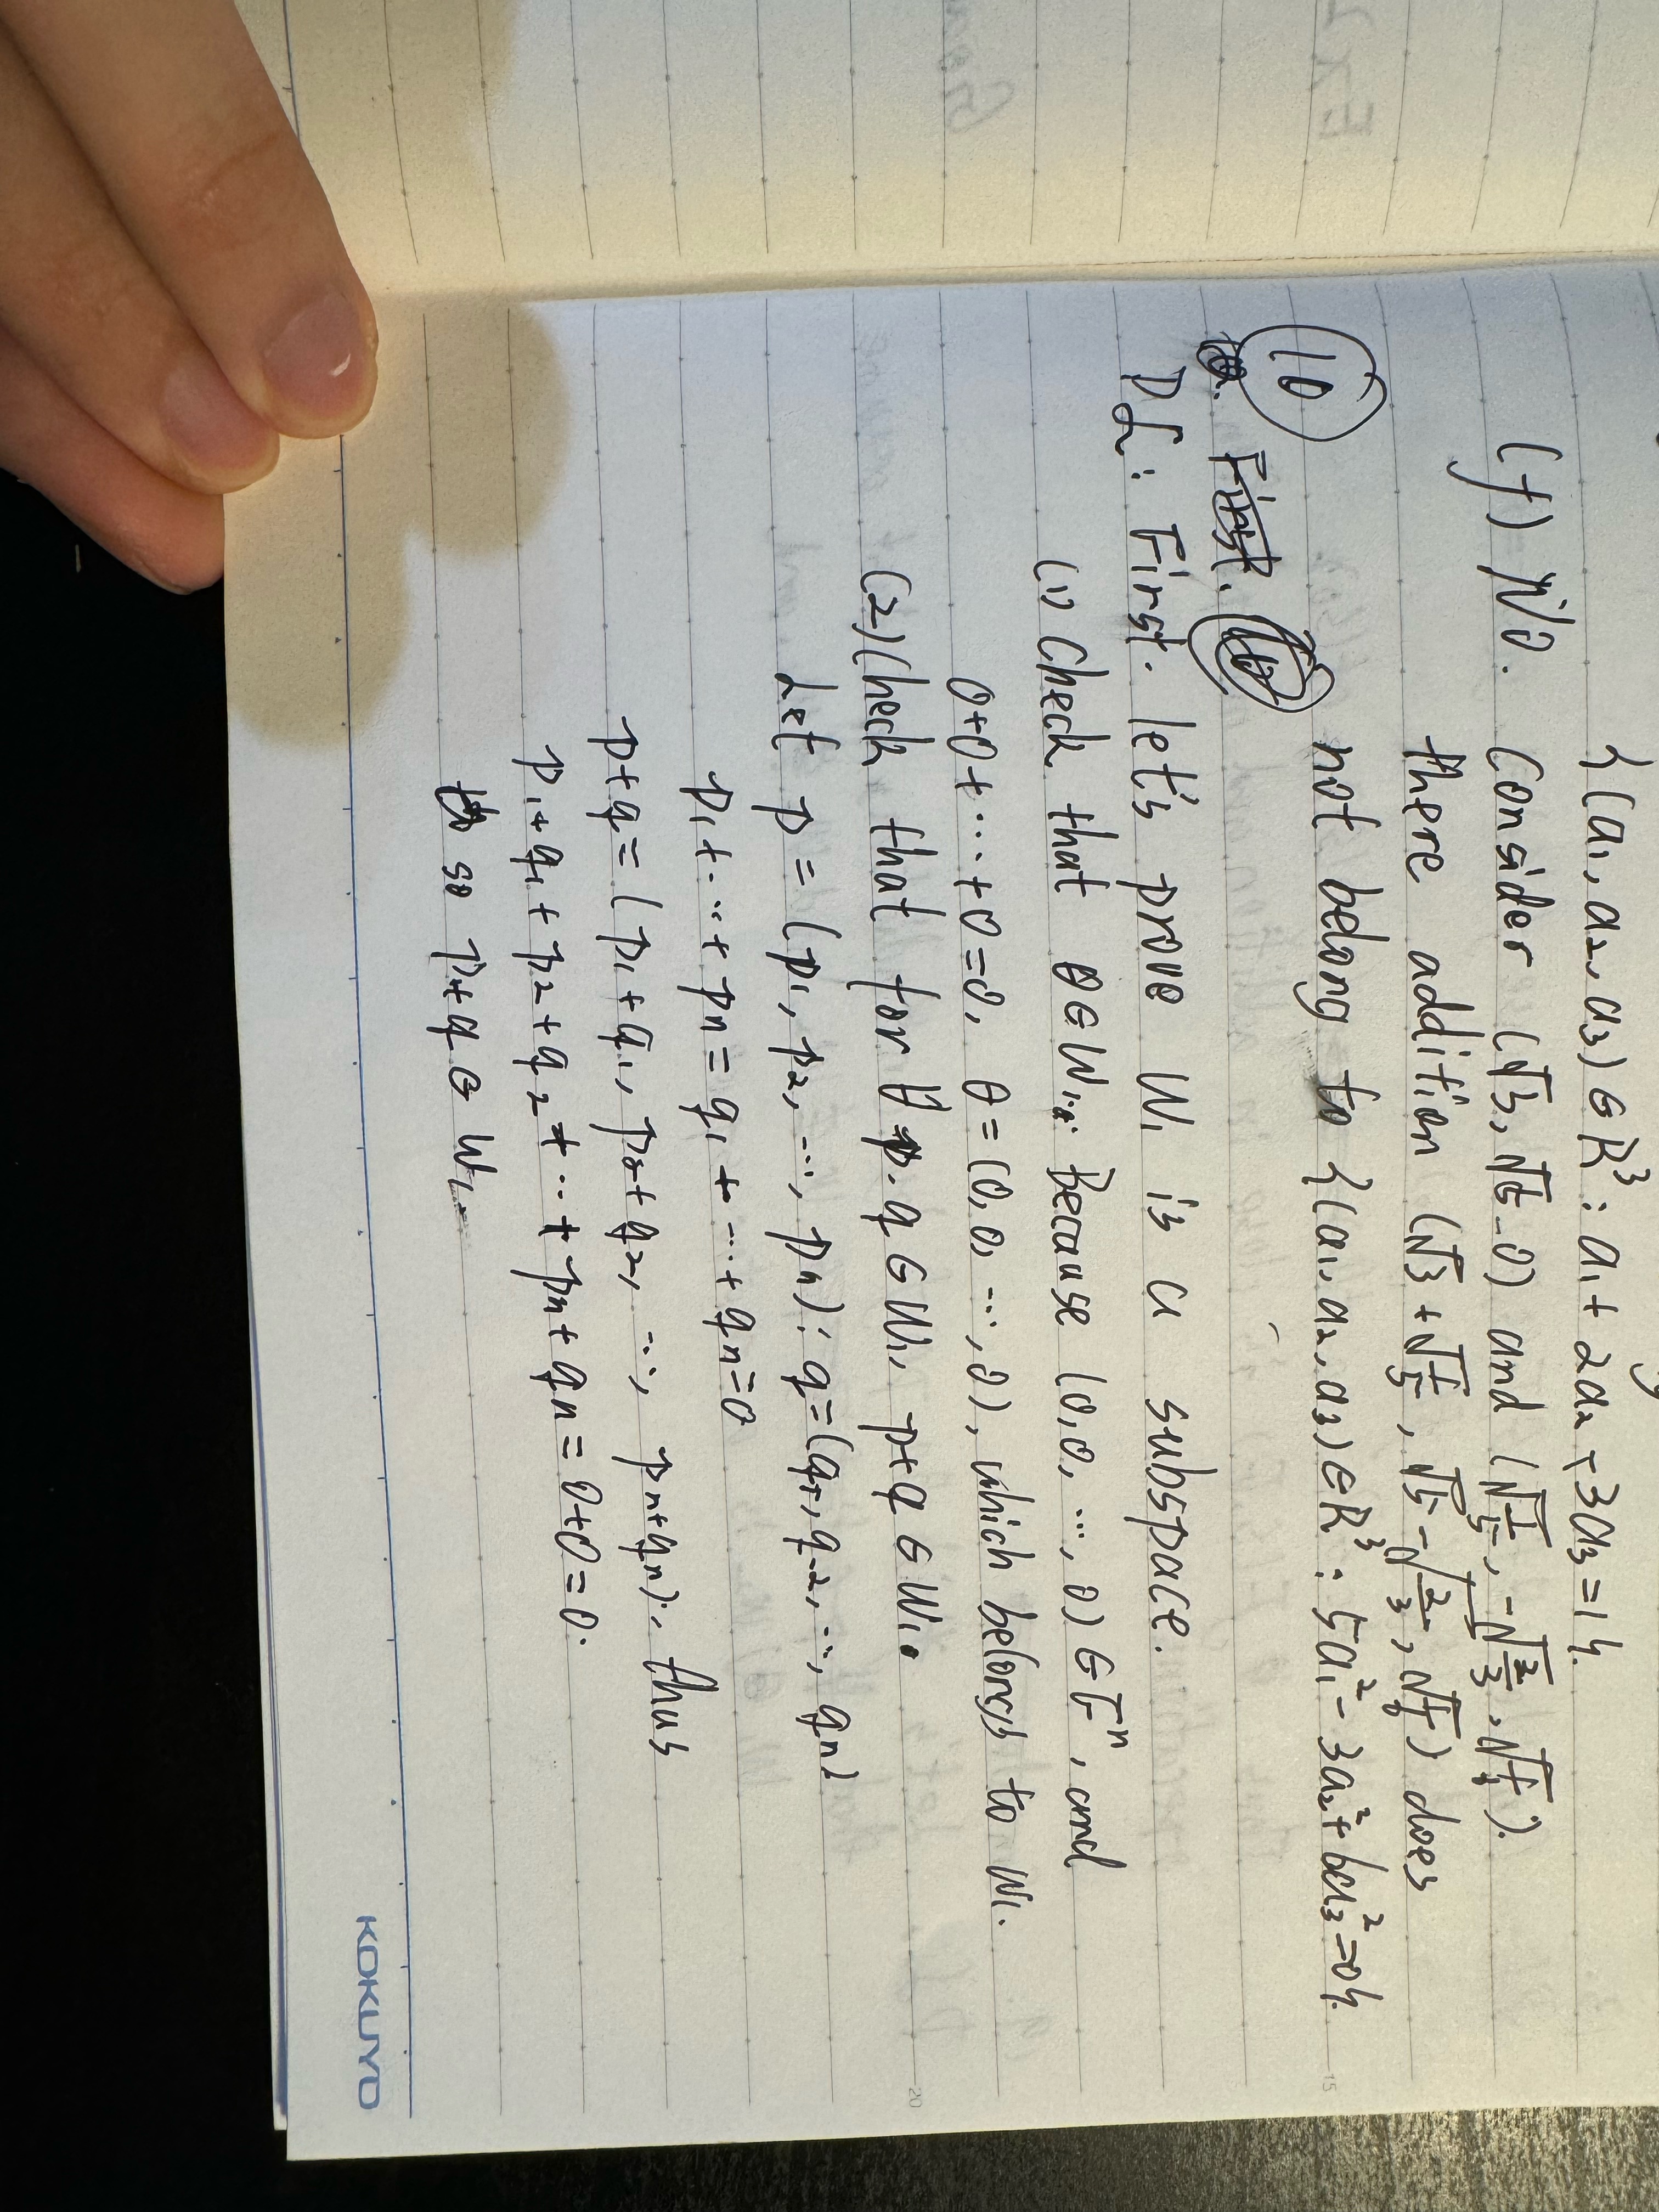 {(a₁, a₂, a₃) ∈ R³ : a₁ + 2a₂ - 3a₃ = 1}.
(f) No. Consider (√3, √5, 0) and
there addition
not belong to {(a₁, a₂, a₃) ∈ R³ : 5a₁² - 3a₂² + 6a₃² = 0}.
10
First.
Pf: First. let's prove W₁ is a subspace.
(1) Check that 0 ∈ W₁: Because (0, 0, ..., 0) ∈ Fⁿ, and
0+0+...+0=0, 0 = (0, 0, ..., 0), which belongs to W₁.
(2) Check that for ∀ p, q ∈ W₁, p+q ∈ W₁.
Let p = (p₁, p₂, ..., pn), q = (q₁, q₂, ..., qn)
p₁ + ... + pn = q₁ + ... + qn = 0
p+q = (p₁+q₁, p₂+q₂, ..., pn+qn), thus
p₁+q₁ + p₂+q₂ + ... + pn+qn = 0+0 = 0.
so p+q ∈ W₁.
KOKUYO
15
20